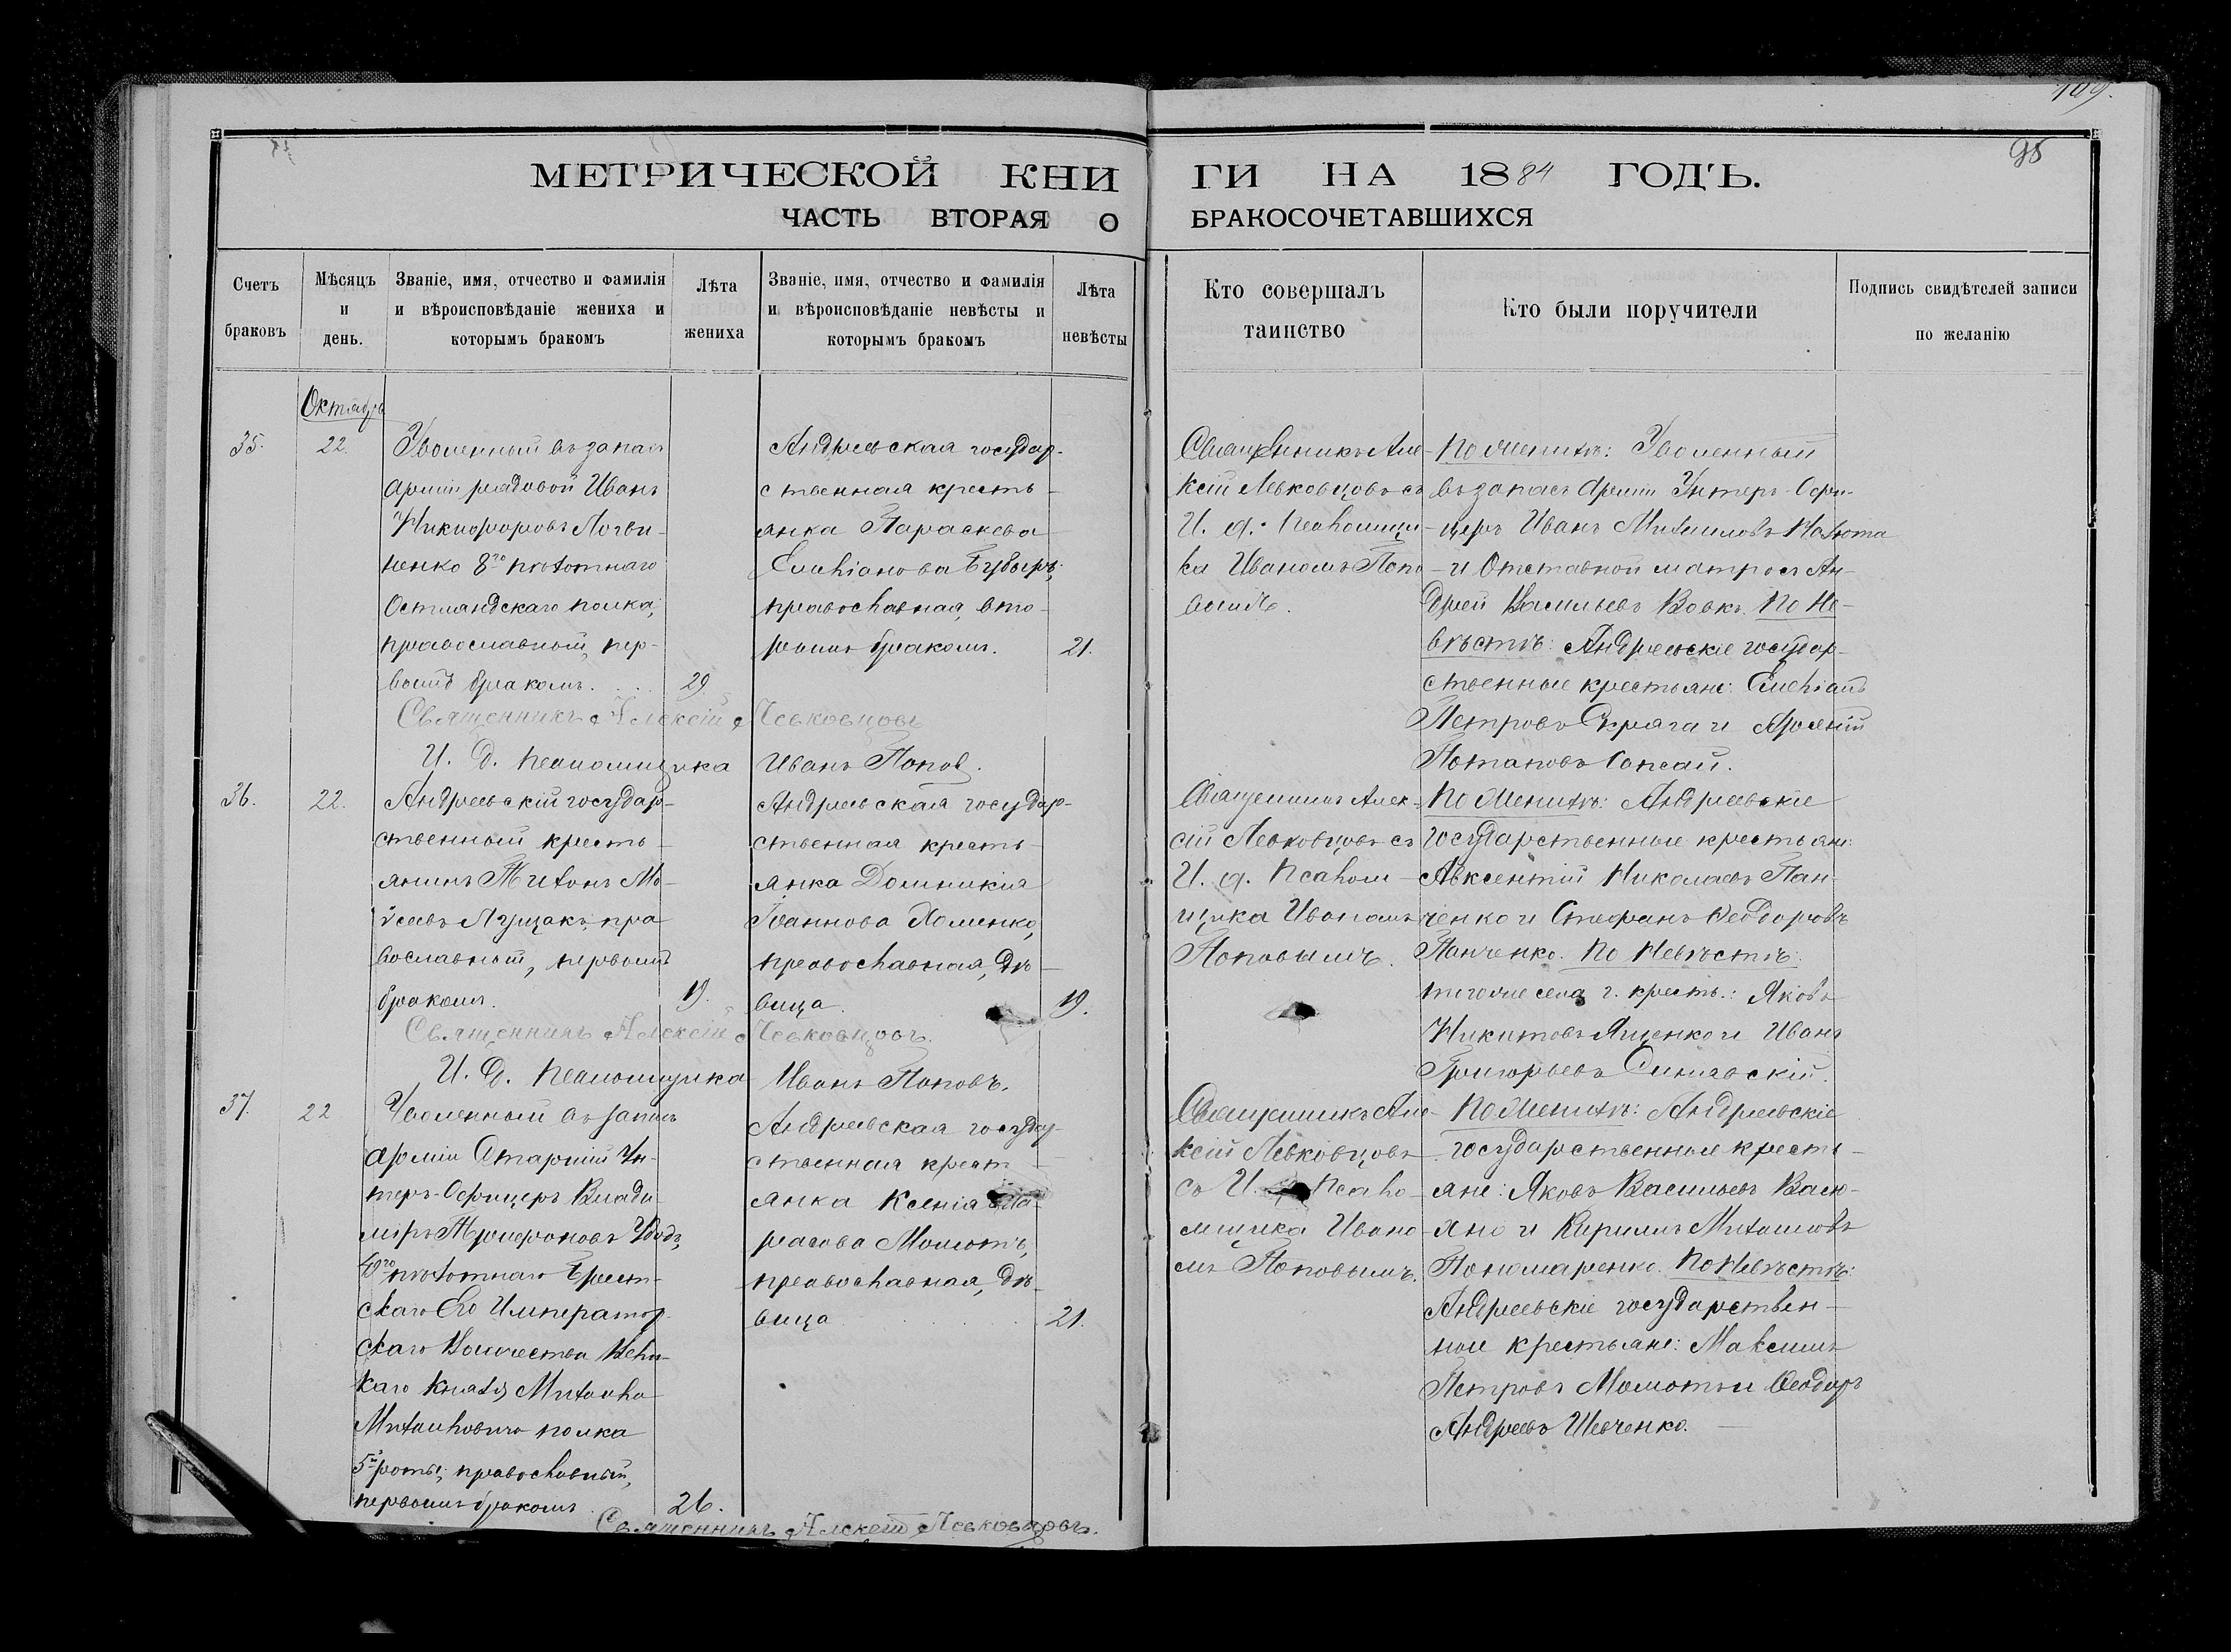 109.
95
МЕТРИЧЕСКОЙ КНИГИ НА 1884 ГОДЪ.
ЧАСТЬ ВТОРАЯ О БРАКОСОЧЕТАВШИХСЯ
Счетъ браковъ
Мѣсяцъ и день.
Званіе, имя, отчество и фамилія
и вѣроисповѣданіе жениха и
которымъ бракомъ
Лѣта
жениха
Званіе, имя, отчество и фамилія
и вѣроисповѣданіе невѣсты и
которымъ бракомъ
Лѣта
невѣсты
Кто совершалъ
таинство
Кто были поручители
Подпись свидѣтелей записи
по желанію
Октябрь
35.
22.
Уволенный въ запасъ
арміи рядовой Иванъ
Никифоровъ Логви-
ненко 8го пѣхотнаго
Остляндскаго полка,
православный, пер-
вымъ бракомъ.
29.
Андреевская государ-
ственная кресть-
янка Параскева
Емиліанова Бубырь,
православная, вто-
рымъ бракомъ.
21.
Священникъ Але-
ксій Левковцовъ съ
И. д. Псаломщи-
ка Иваномъ Попо-
вымъ.
По женихѣ: Уволенный
въ запасъ арміи Унтеръ-Офи-
церъ Иванъ Михаиловъ
и Отставной матросъ Ан-
дрей Васильевъ Вовкъ. По не-
вѣстѣ: Андреевскіе государ-
ственные крестьяне: Емиліанъ
Петровъ Скряга и
Потаповъ
Священникъ Алексій Левковцовъ
И. д. псаломщика Иванъ Попов.
36.
22.
Андреевскій государ-
ственный кресть-
янинъ Тихонъ Мо-
исеевъ Лущакъ, пра
вославный, первымъ
бракомъ.
19.
Андреевская государ-
ственная кресть-
янка Домникія
Іоаннова Хоменко,
православная, дѣ-
вица.
19.
Священникъ Алек-
сій Левковцовъ съ
И. д. Псалом-
щика Иваномъ
Поповымъ.
По женихѣ: Андреевскіе
государственные крестьяне:
Авксентій Николаевъ Пан-
ченко и Стефанъ Феодоровъ
Панченко. По невѣстѣ:
того же села г. кресть.: Яковъ
Никитовъ Ященко и Иванъ
Григорьевъ Синявскій.
Священникъ Алексій Левковцовъ.
И. д. псаломщика Иванъ Поповъ.
37.
22
Уволенный въ запасъ
арміи Старшій Ун-
теръ-Офицеръ Влади-
міръ Трифоновъ
пѣхотнаго Брест-
скаго Его Император-
скаго Высочества Вели-
каго Князя Михаила
Михаиловича полка
5й роты, православный,
первымъ бракомъ
26.
Андреевская государ-
ственная крест-
янка Ксенія
Момотъ,
православная, дѣ-
вица
21.
Священникъ Але-
ксій Левковцовъ
съ И. Псало-
мщика Ивано-
мъ Поповымъ.
По женихѣ: Андреевскіе
государственные кресть-
яне: Яковъ Васильевъ
и Кириллъ Михаиловъ
Пономаренко. По невѣстѣ:
Андреевскіе государствен-
ные крестьяне: Максимъ
Петровъ Момотъ и Феодоръ
Андреевъ Шевченко.
Священникъ Алексій Левковцовъ.